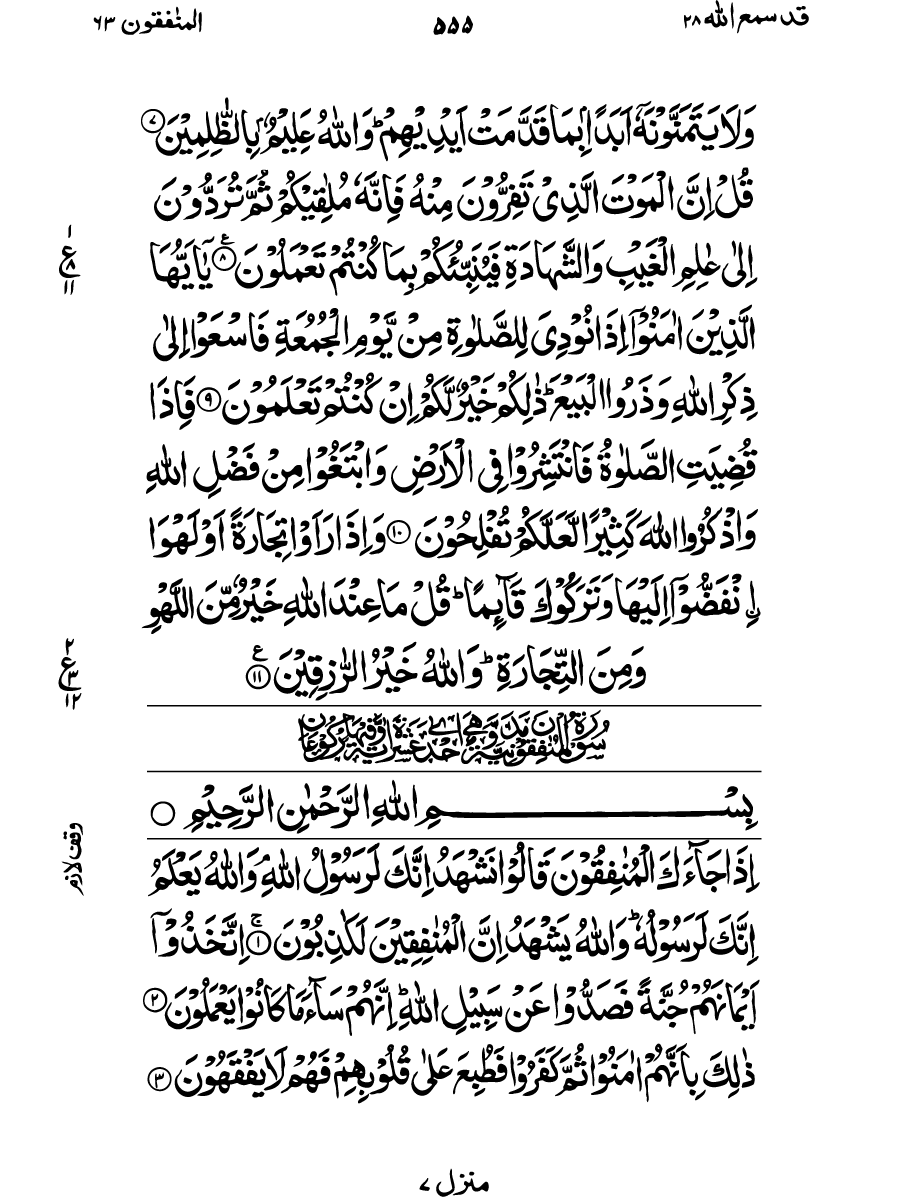 قد سمع الله ۲۸
۵۵۵
المنٰفقون ۶۳
وَلَا يَتَمَنَّوۡنَهٗۤ اَبَدًۢا بِمَا قَدَّمَتۡ اَيۡدِيۡهِمۡ‌ؕ وَاللّٰهُ عَلِيۡمٌۢ بِالظّٰلِمِيۡنَ ۷
قُلۡ اِنَّ الۡمَوۡتَ الَّذِىۡ تَفِرُّوۡنَ مِنۡهُ فَاِنَّهٗ مُلٰقِيۡكُمۡ‌ ثُمَّ تُرَدُّوۡنَ
اِلٰى عٰلِمِ الۡغَيۡبِ وَالشَّهَادَةِ فَيُنَبِّئُكُمۡ بِمَا كُنۡتُمۡ تَعۡمَلُوۡنَ ۸ ع يٰۤاَيُّهَا
الَّذِيۡنَ اٰمَنُوۡۤا اِذَا نُوۡدِىَ لِلصَّلٰوةِ مِنۡ يَّوۡمِ الۡجُمُعَةِ فَاسۡعَوۡا اِلٰى
ذِكۡرِ اللّٰهِ وَذَرُوا الۡبَيۡعَ‌ ؕ ذٰ لِكُمۡ خَيۡرٌ لَّكُمۡ اِنۡ كُنۡتُمۡ تَعۡلَمُوۡنَ ۹ فَاِذَا
قُضِيَتِ الصَّلٰوةُ فَانْتَشِرُوۡا فِى الۡاَرۡضِ وَابۡتَغُوۡا مِنۡ فَضۡلِ اللّٰهِ
وَاذۡكُرُوا اللّٰهَ كَثِيۡرًا لَّعَلَّكُمۡ تُفۡلِحُوۡنَ ۱۰ وَاِذَا رَاَوۡا تِجَارَةً اَوۡ لَهۡوَا
۟اۨنْفَضُّوۡۤا اِلَيۡهَا وَتَرَكُوۡكَ قَآٮِٕمًا‌ ؕ قُلۡ مَا عِنۡدَ اللّٰهِ خَيۡرٌ مِّنَ اللَّهۡوِ
وَمِنَ التِّجَارَةِ‌ ؕ وَاللّٰهُ خَيۡرُ الرّٰزِقِيۡنَ ۱۱ ع
۱
ع
۸
۱۱
۲
ع
۳
۱۲
سُوۡرَةُ الۡمُنٰفِقُوۡنَ مَدَنِيَّةٌ وَّهِىَ اِحۡدٰى عَشَرَةَ اٰيَةً وَّفِيۡهَا رُكُوۡعَانِ
بِسۡمِ اللّٰهِ الرَّحۡمٰنِ الرَّحِيۡمِ
وقف لازم
اِذَا جَآءَكَ الۡمُنٰفِقُوۡنَ قَالُوۡا نَشۡهَدُ اِنَّكَ لَرَسُوۡلُ اللّٰهِ‌ۘ وَاللّٰهُ يَعۡلَمُ
اِنَّكَ لَرَسُوۡلُهٗ ؕ وَاللّٰهُ يَشۡهَدُ اِنَّ الۡمُنٰفِقِيۡنَ لَـكٰذِبُوۡنَ‌ ۚ ۱ اِتَّخَذُوۡۤا
اَيۡمَانَهُمۡ جُنَّةً فَصَدُّوۡا عَنۡ سَبِيۡلِ اللّٰهِ‌ ؕ اِنَّهُمۡ سَآءَ مَا كَانُوۡا يَعۡمَلُوۡنَ ۲
ذٰ لِكَ بِاَنَّهُمۡ اٰمَنُوۡا ثُمَّ كَفَرُوۡا فَطُبِعَ عَلٰى قُلُوۡبِهِمۡ فَهُمۡ لَا يَفۡقَهُوۡنَ ۳
منزل ۷